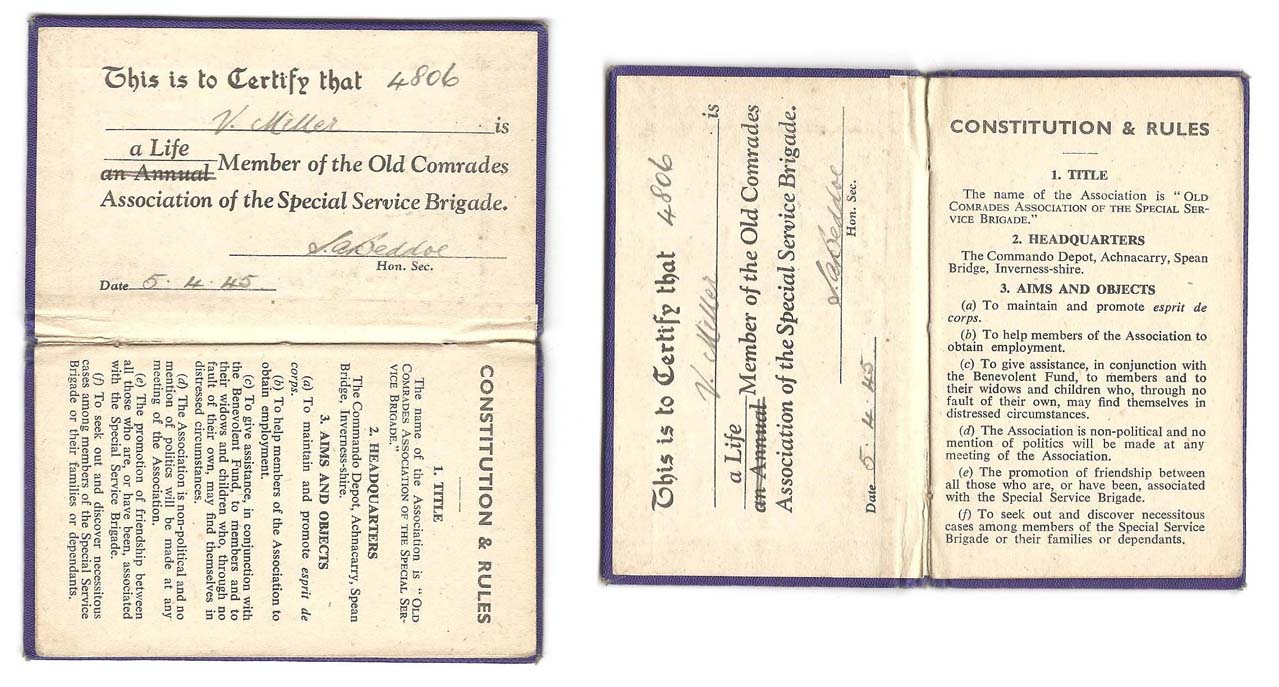 This is to Certify that 4806
V. Miller is
a Life
an Annual Member of the Old Comrades
Association of the Special Service Brigade.
S.A. Beddoe
Hon. Sec.
Date 5.4.45
CONSTITUTION & RULES
1. TITLE
The name of the Association is "OLD
COMRADES ASSOCIATION OF THE SPECIAL SER-
VICE BRIGADE."
2. HEADQUARTERS
The Commando Depot, Achnacarry, Spean
Bridge, Inverness-shire.
3. AIMS AND OBJECTS
(a) To maintain and promote esprit de
corps.
(b) To help members of the Association to
obtain employment.
(c) To give assistance, in conjunction with
the Benevolent Fund, to members and to
their widows and children who, through no
fault of their own, may find themselves in
distressed circumstances.
(d) The Association is non-political and no
mention of politics will be made at any
meeting of the Association.
(e) The promotion of friendship between
all those who are, or have been, associated
with the Special Service Brigade.
(f) To seek out and discover necessitous
cases among members of the Special Service
Brigade or their families or dependants.
This is to Certify that 4806
V. Miller is
a Life
an Annual Member of the Old Comrades
Association of the Special Service Brigade.
S.A. Beddoe
Hon. Sec.
Date 5.4.45
CONSTITUTION & RULES
1. TITLE
The name of the Association is "OLD
COMRADES ASSOCIATION OF THE SPECIAL SER-
VICE BRIGADE."
2. HEADQUARTERS
The Commando Depot, Achnacarry, Spean
Bridge, Inverness-shire.
3. AIMS AND OBJECTS
(a) To maintain and promote esprit de
corps.
(b) To help members of the Association to
obtain employment.
(c) To give assistance, in conjunction with
the Benevolent Fund, to members and to
their widows and children who, through no
fault of their own, may find themselves in
distressed circumstances.
(d) The Association is non-political and no
mention of politics will be made at any
meeting of the Association.
(e) The promotion of friendship between
all those who are, or have been, associated
with the Special Service Brigade.
(f) To seek out and discover necessitous
cases among members of the Special Service
Brigade or their families or dependants.